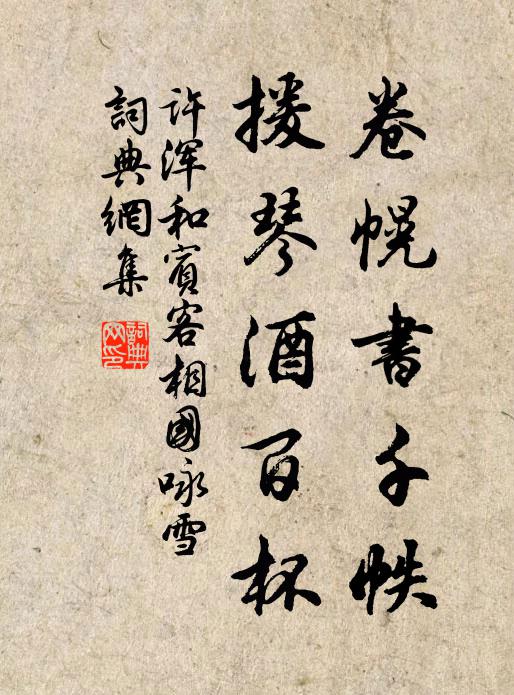 卷幌書千帙
援琴酒百杯
許渾和賓客相國咏雪
詞典網集
詞典网印